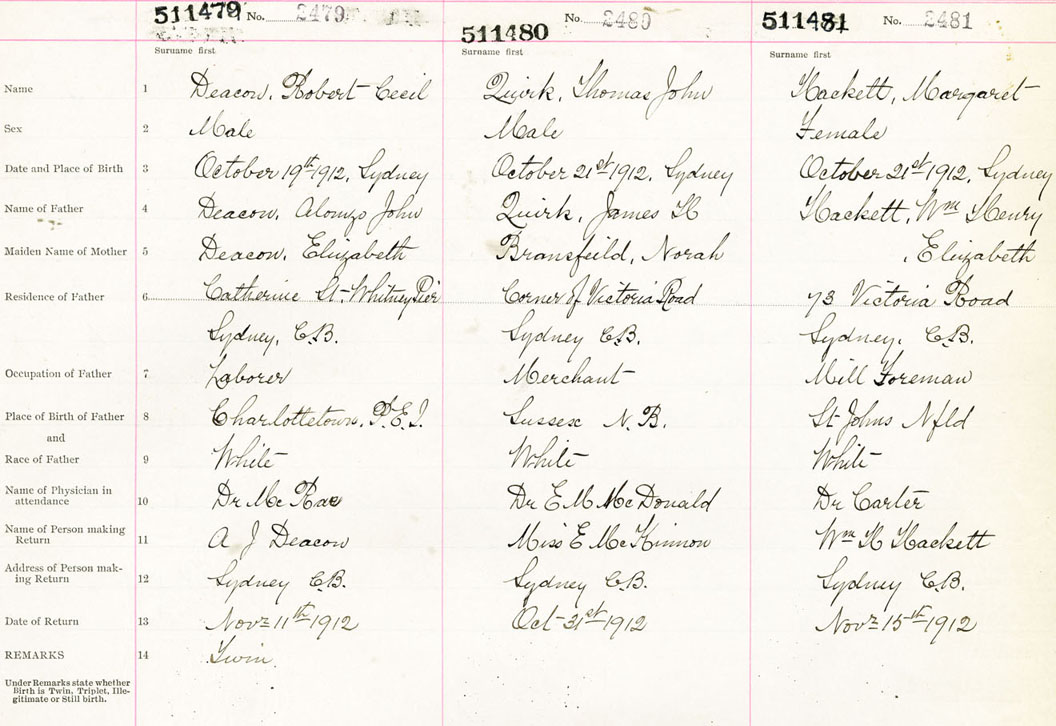 511479 No. 2479 511480 No. 2480 511481 No. 2481
Surname first Surname first Surname first
Name 1 Deacon, Robert Cecil Quirk, Thomas John Hackett, Margaret
Sex 2 Male Male Female
Date and Place of Birth 3 October 19th 1912, Sydney October 21st 1912, Sydney October 21st 1912, Sydney
Name of Father 4 Deacon, Alonzo John Quirk, James H Hackett, Wm Henry
Maiden Name of Mother 5 Deacon, Elizabeth Bransfeild, Norah , Elizabeth
Residence of Father 6 Catherine St-Whitney Pier Corner of Victoria Road 73 Victoria Road
Sydney, C.B. Sydney C.B. Sydney, C.B.
Occupation of Father 7 Laborer Merchant Mill Foreman
Place of Birth of Father 8 Charlottetown, P.E.I. Sussex N.B. St Johns Nfld
and
Race of Father 9 White White White
Name of Physician in
attendance 10 Dr McRae Dr E M McDonald Dr Carter
Name of Person making
Return 11 A J Deacon Miss E McKinnon Wm H Hackett
Address of Person mak-
ing Return 12 Sydney C.B. Sydney C.B. Sydney C.B.
Date of Return 13 Novr 11th 1912 Oct-31st 1912 Novr 15th 1912
REMARKS 14 Twin
Under Remarks state whether
Birth is Twin, Triplet, Ille-
gitimate or Still birth.